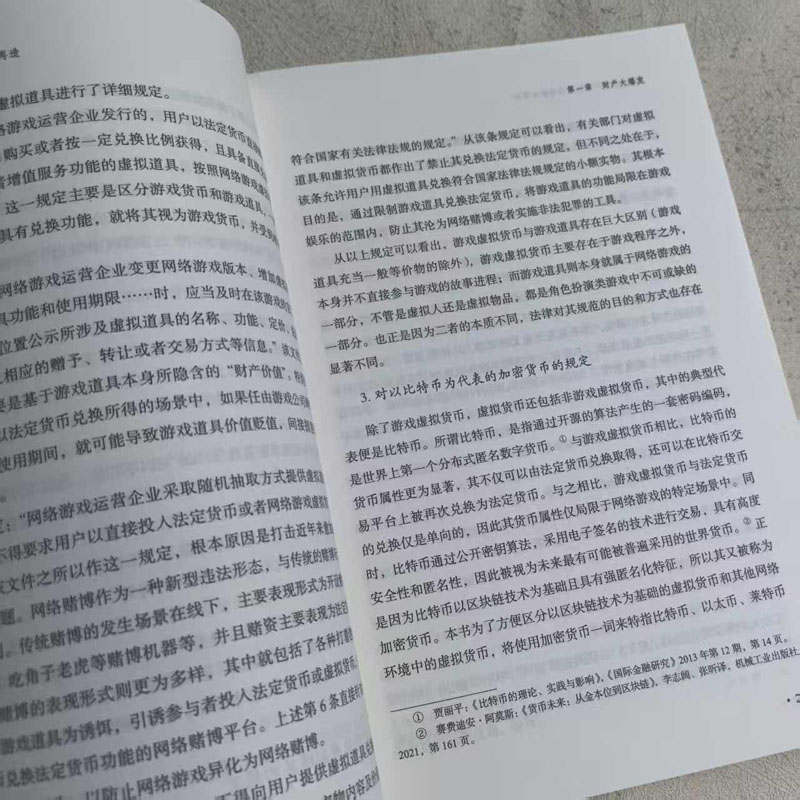 再造
虚拟道具进行了详细规定。
络游戏运营企业发行的，用户以法定货币直接
购买或者按一定兑换比例获得，且具备直接
者增值服务功能的虚拟道具，按照网络游戏虚
这一规定主要是区分游戏货币和游戏道具，
具有兑换功能，就将其视为游戏货币，并受到
网络游戏运营企业变更网络游戏版本、增加
具功能和使用期限……时，应当及时在该游戏的
位置公示所涉及虚拟道具的名称、功能、定价、
相应的赠予、转让或者交易方式等信息。”该文
要是基于游戏道具本身所隐含的“财产价值”。
以法定货币兑换所得的场景中，如果任由游戏公司
使用期间，就可能导致游戏道具价值贬值，间接
。
定：“网络游戏运营企业采取随机抽取方式提供虚
不得要求用户以直接投入法定货币或者网络游戏虚
文件之所以作这一规定，根本原因是打击近年来
题。网络赌博作为一种新型违法形态，与传统的赌
。传统赌博的发生场景在线下，主要表现形式为开
吃角子老虎等赌博机器等，并且赌资主要表现为法
赌博的表现形式则更为多样，其中就包括了各种打着
游戏道具为诱饵，引诱参与者投入法定货币或虚拟货
兑换法定货币功能的网络赌博平台。上述第6条直接
，以防止网络游戏异化为网络赌博。
不得向用户提供虚拟道具兑
实物内容及
第一章 财产大爆发
符合国家有关法律法规的规定。”从该条规定可以看出，有关部门对虚拟
道具和虚拟货币都作出了禁止其兑换法定货币的规定，但不同之处在于，
该条允许用户用虚拟道具兑换符合国家法律法规规定的小额实物。其根本
目的是，通过限制游戏道具兑换法定货币，将游戏道具的功能局限在游戏
娱乐的范围内，防止其沦为网络赌博或者实施非法犯罪的工具。
从以上规定可以看出，游戏虚拟货币与游戏道具存在巨大区别（游戏
道具充当一般等价物的除外），游戏虚拟货币主要存在于游戏程序之外，
本身并不直接参与游戏的故事进程；而游戏道具则本身就属于网络游戏的
一部分，不管是虚拟人还是虚拟物品，都是角色扮演类游戏中不可或缺的
一部分。也正是因为二者的本质不同，法律对其规范的目的和方式也存在
显著不同。
3. 对以比特币为代表的加密货币的规定
除了游戏虚拟货币，虚拟货币还包括非游戏虚拟货币，其中的典型代
表便是比特币。所谓比特币，是指通过开源的算法产生的一套密码编码，
是世界上第一个分布式匿名数字货币。①与游戏虚拟货币相比，比特币的
货币属性更为显著，其不仅可以由法定货币兑换取得，还可以在比特币交
易平台上被再次兑换为法定货币。与之相比，游戏虚拟货币与法定货币
的兑换仅是单向的，因此其货币属性仅局限于网络游戏的特定场景中。同
时，比特币通过公开密钥算法，采用电子签名的技术进行交易，具有高度
安全性和匿名性，因此被视为未来最有可能被普遍采用的世界货币。②正
是因为比特币以区块链技术为基础且具有强匿名化特征，所以其又被称为
加密货币。本书为了方便区分以区块链技术为基础的虚拟货币和其他网络
环境中的虚拟货币，将使用加密货币一词来特指比特币、以太币、莱特币
① 贾丽平：《比特币的理论、实践与影响》，《国际金融研究》2013年第12期，第14页。
② 赛费迪安·阿莫斯：《货币未来：从金本位到区块链》，李志阔、张昕译，机械工业出版社
2021，第161页。